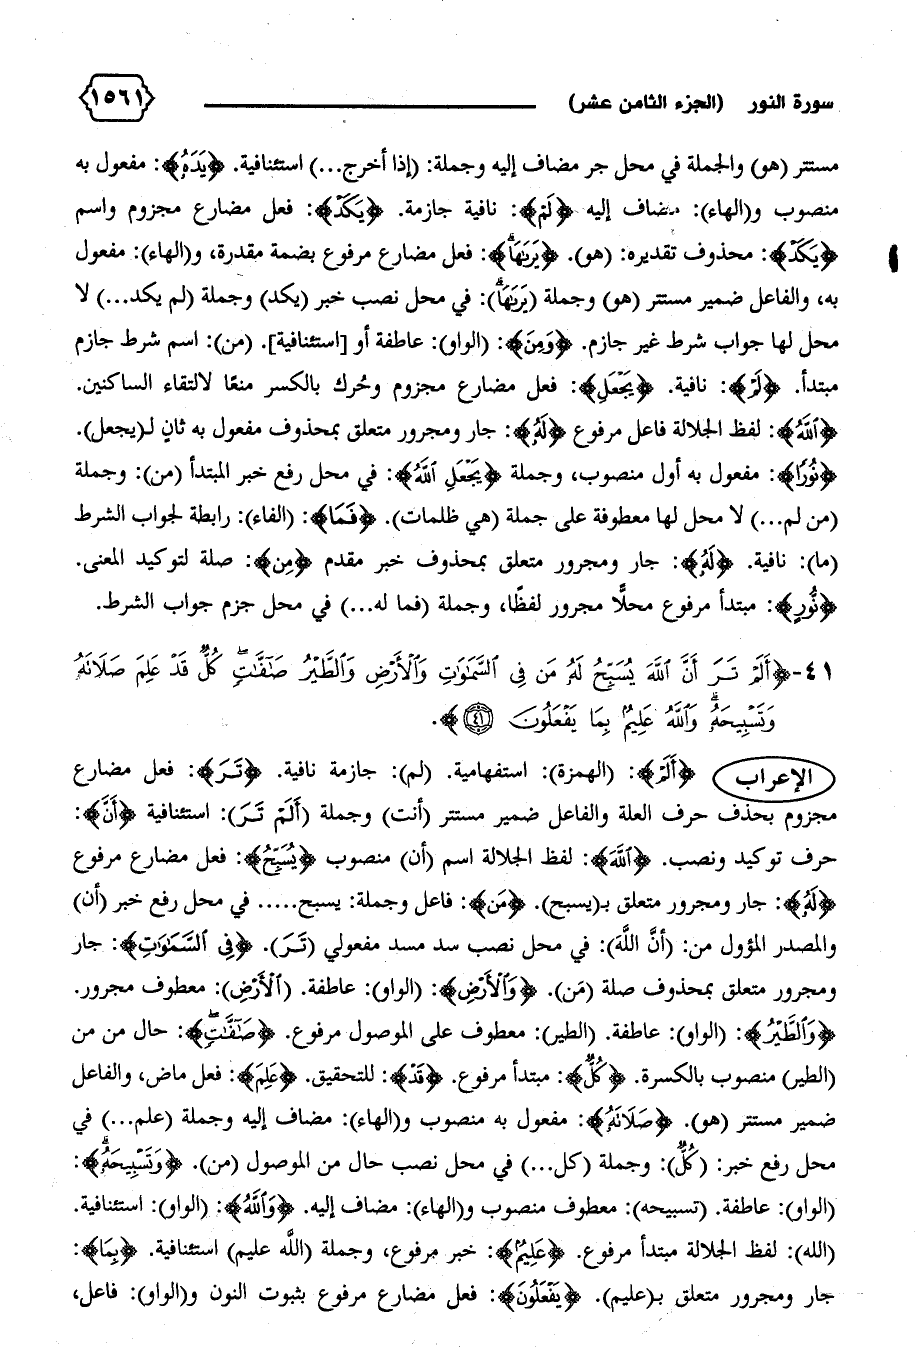 سورة النور (الجزء الثامن عشر)
١٥٦١
مستتر (هو) والجملة في محل جر مضاف إليه وجملة: (إذا أخرج...) استئنافية. ﴿يَدَهُ﴾: مفعول به
منصوب و(الهاء): مضاف إليه ﴿لَمْ﴾: نافية جازمة. ﴿يَكَدْ﴾: فعل مضارع مجزوم واسم
﴿يَكَدْ﴾: محذوف تقديره: (هو). ﴿يَرَىٰهَاۗ﴾: فعل مضارع مرفوع بضمة مقدرة، و(الهاء): مفعول
به، والفاعل ضمير مستتر (هو) وجملة (يَرَىٰهَاۗ): في محل نصب خبر (يكد) وجملة (لم يكد...) لا
محل لها جواب شرط غير جازم. ﴿وَمِنَ﴾: (الواو): عاطفة أو [استئنافية]. (من): اسم شرط جازم
مبتدأ. ﴿لَّمْ﴾: نافية. ﴿يَجْعَلِ﴾: فعل مضارع مجزوم وحُرك بالكسر منعًا لالتقاء الساكنين.
﴿ٱللَّهُ﴾: لفظ الجلالة فاعل مرفوع ﴿لَهُۥ﴾: جار ومجرور متعلق بمحذوف مفعول به ثانٍ لـ(يجعل).
﴿نُورًا﴾: مفعول به أول منصوب، وجملة ﴿يَجْعَلِ ٱللَّهُ﴾: في محل رفع خبر المبتدأ (من): وجملة
(من لم...) لا محل لها معطوفة على جملة (هي ظلمات). ﴿فَمَا﴾: (الفاء): رابطة لجواب الشرط
(ما): نافية. ﴿لَهُۥ﴾: جار ومجرور متعلق بمحذوف خبر مقدم ﴿مِن﴾: صلة لتوكيد المعنى.
﴿نُّورٍ﴾: مبتدأ مرفوع محلًّا مجرور لفظًا، وجملة (فما له...) في محل جزم جواب الشرط.
٤١-﴿أَلَمْ تَرَ أَنَّ ٱللَّهَ يُسَبِّحُ لَهُۥ مَن فِى ٱلسَّمَٰوَٰتِ وَٱلْأَرْضِ وَٱلطَّيْرُ صَٰٓفَّٰتٍۖ كُلٌّ قَدْ عَلِمَ صَلَاتَهُۥ
وَتَسْبِيحَهُۥۗ وَٱللَّهُ عَلِيمٌۢ بِمَا يَفْعَلُونَ ﴿٤١﴾﴾.
الإعراب ﴿أَلَمْ﴾: (الهمزة): استفهامية. (لم): جازمة نافية. ﴿تَرَ﴾: فعل مضارع
مجزوم بحذف حرف العلة والفاعل ضمير مستتر (أنت) وجملة (أَلَمْ تَرَ): استئنافية ﴿أَنَّ﴾:
حرف توكيد ونصب. ﴿ٱللَّهَ﴾: لفظ الجلالة اسم (أن) منصوب ﴿يُسَبِّحُ﴾: فعل مضارع مرفوع
﴿لَهُۥ﴾: جار ومجرور متعلق بـ(يسبح). ﴿مَن﴾: فاعل وجملة: يسبح..... في محل رفع خبر (أن)
والمصدر المؤول من: (أنَّ اللَّهَ): في محل نصب سد مسد مفعولي (تَرَ). ﴿فِى ٱلسَّمَٰوَٰتِ﴾: جار
ومجرور متعلق بمحذوف صلة (مَن). ﴿وَٱلْأَرْضِ﴾: (الواو): عاطفة. (ٱلْأَرْضِ): معطوف مجرور.
﴿وَٱلطَّيْرُ﴾: (الواو): عاطفة. (الطير): معطوف على الموصول مرفوع. ﴿صَٰٓفَّٰتٍۖ﴾: حال من من
(الطير) منصوب بالكسرة. ﴿كُلٌّ﴾: مبتدأ مرفوع. ﴿قَدْ﴾: للتحقيق. ﴿عَلِمَ﴾: فعل ماض، والفاعل
ضمير مستتر (هو). ﴿صَلَاتَهُۥ﴾: مفعول به منصوب و(الهاء): مضاف إليه وجملة (علم...) في
محل رفع خبر: (كُلٌّ): وجملة (كل...) في محل نصب حال من الموصول (من). ﴿وَتَسْبِيحَهُۥۗ﴾:
(الواو): عاطفة. (تسبيحه): معطوف منصوب و(الهاء): مضاف إليه. ﴿وَٱللَّهُ﴾: (الواو): استئنافية.
(الله): لفظ الجلالة مبتدأ مرفوع. ﴿عَلِيمٌۢ﴾: خبر مرفوع، وجملة (اللَّه عليم) استئنافية. ﴿بِمَا﴾:
جار ومجرور متعلق بـ(عليم). ﴿يَفْعَلُونَ﴾: فعل مضارع مرفوع بثبوت النون و(الواو): فاعل،